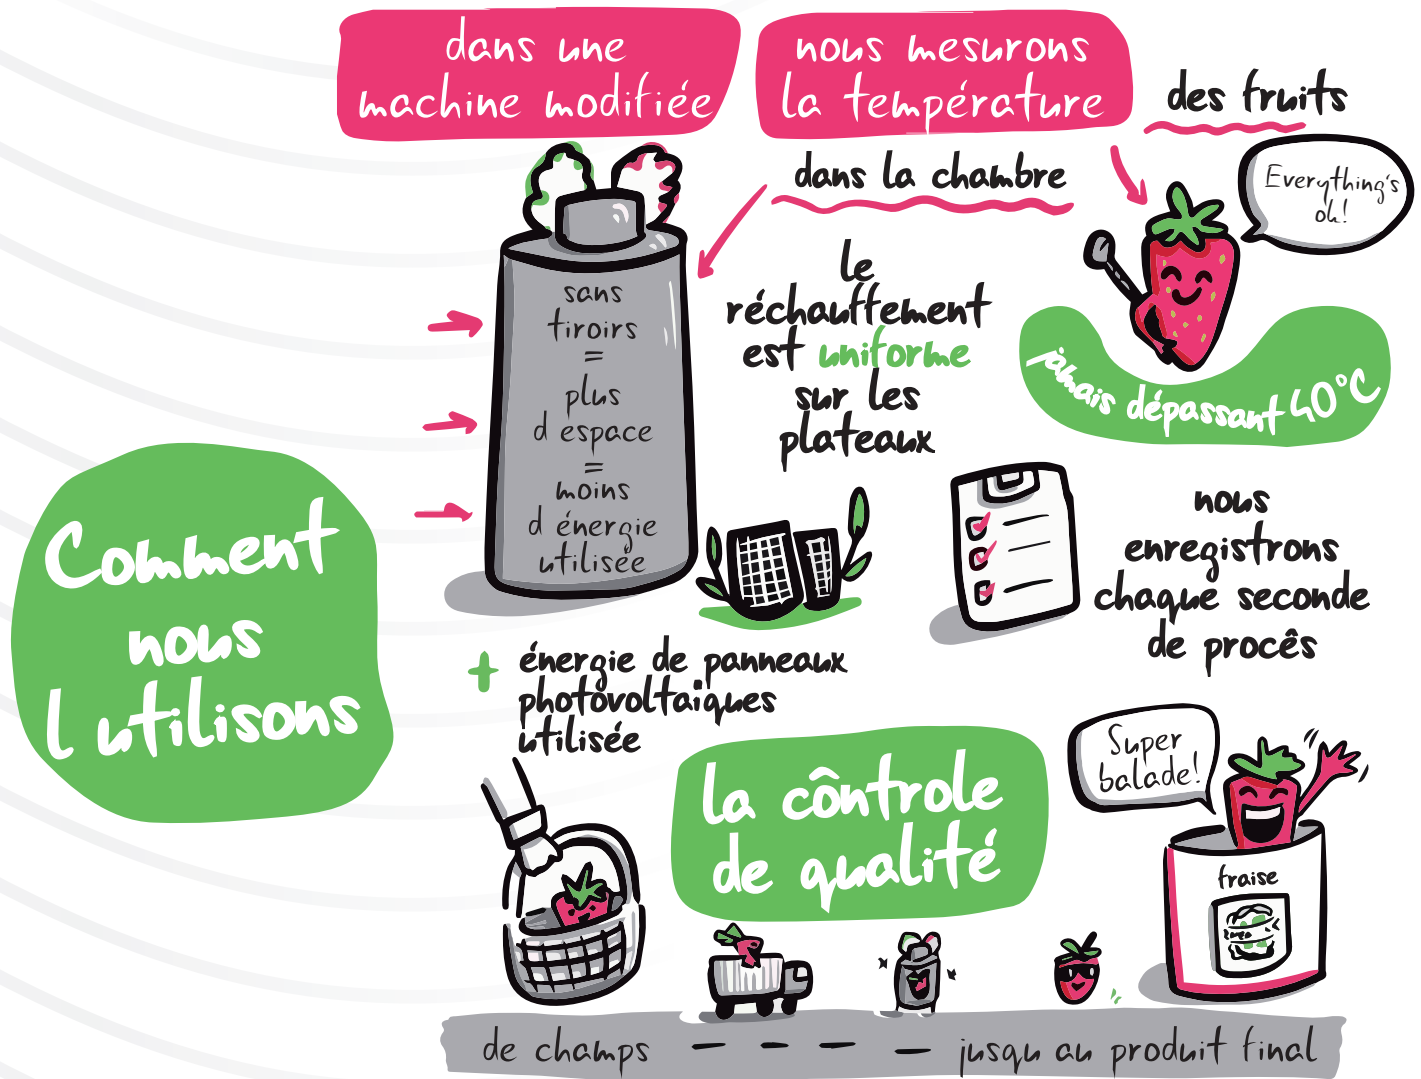 dans une
machine modifiée
nous mesurons
la température
des fruits
dans la chambre
Everything's
ok!
sans
tiroirs
=
plus
d espace
=
moins
d énergie
utilisée
le
réchauffement
est uniforme
sur les
plateaux
jamais dépassant 40°C
Comment
nous
l utilisons
nous
enregistrons
chaque seconde
de procês
+ énergie de panneaux
photovoltaiques
utilisée
la côntrole
de qualité
Super
balade!
fraise
de champs
jusqu au produit final